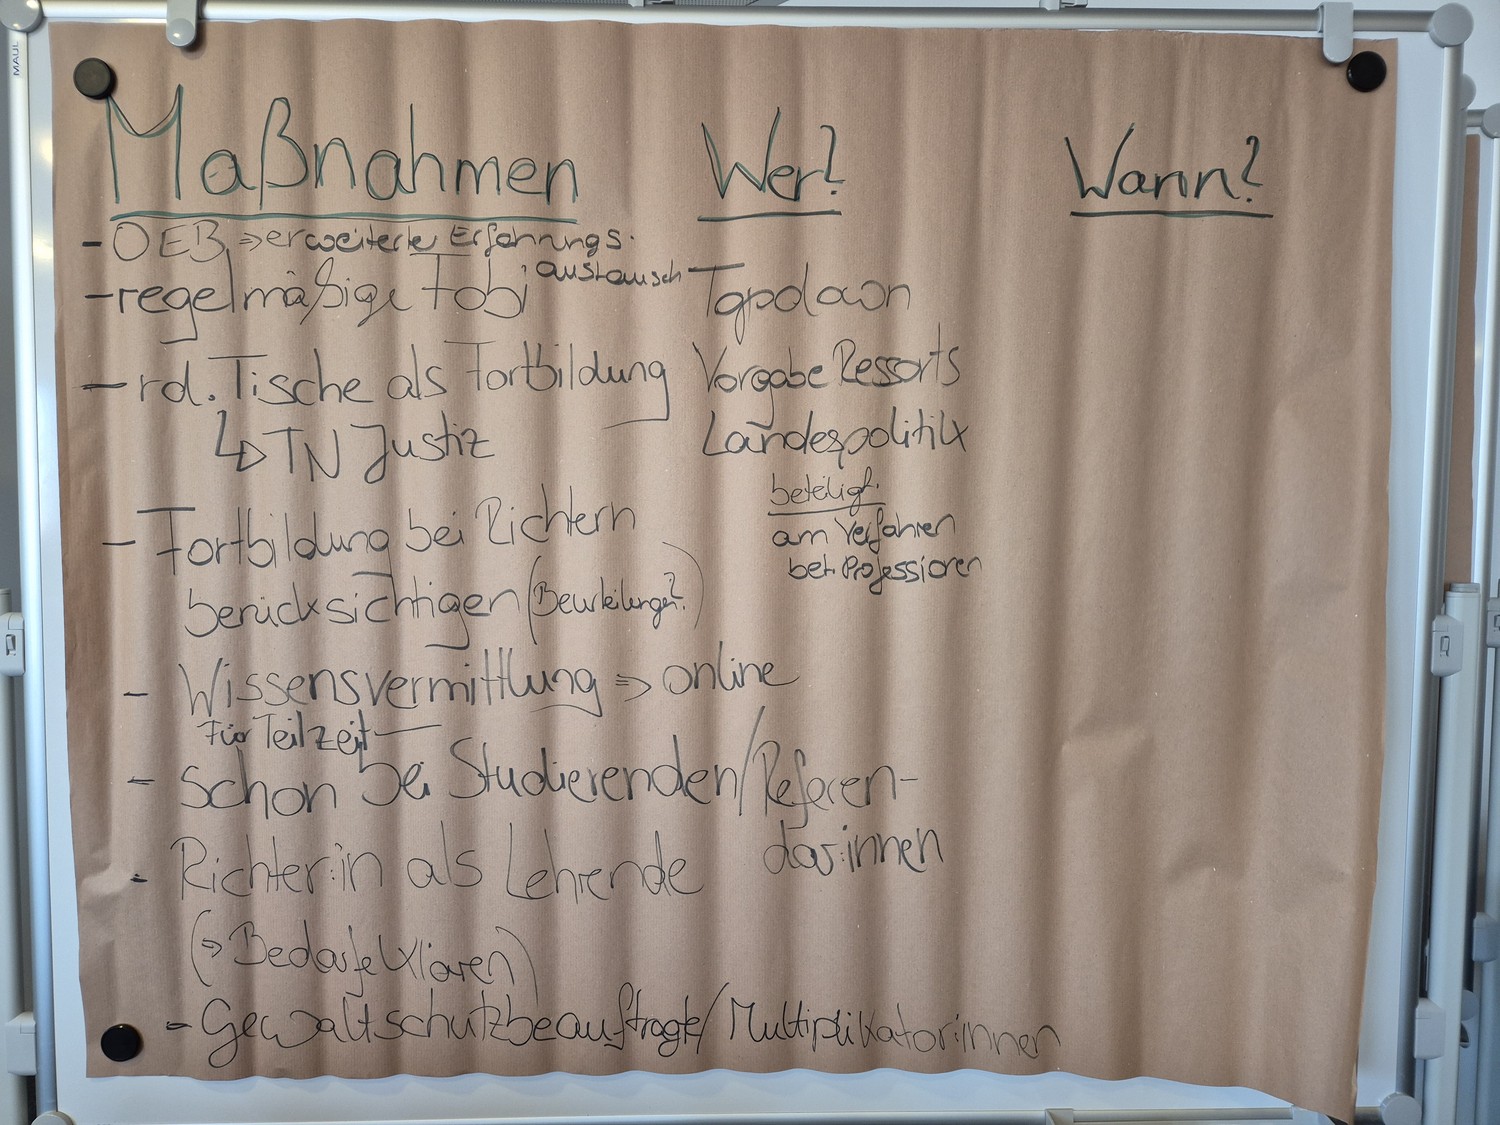 Maßnahmen
- OEB => erweiterte Erfahrungs-
austausch
- regelmäßige Fobi
- rd. Tische als Fortbildung
↳ TN Justiz
- Fortbildung bei Richtern
berücksichtigen (Beurteilungen?)
- Wissensvermittlung => online
Für Teilzeit
- schon bei Studierenden/Referen-
dar:innen
- Richter:in als Lehrende
(=> Bedarfe klären)
- Gewaltschutzbeauftragte/Multiplikator:innen
Wer?
Topdown
Vorgabe Ressorts
Landespolitik
beteiligt.
am Verfahren
bet. Professionen
Wann?
MAUL